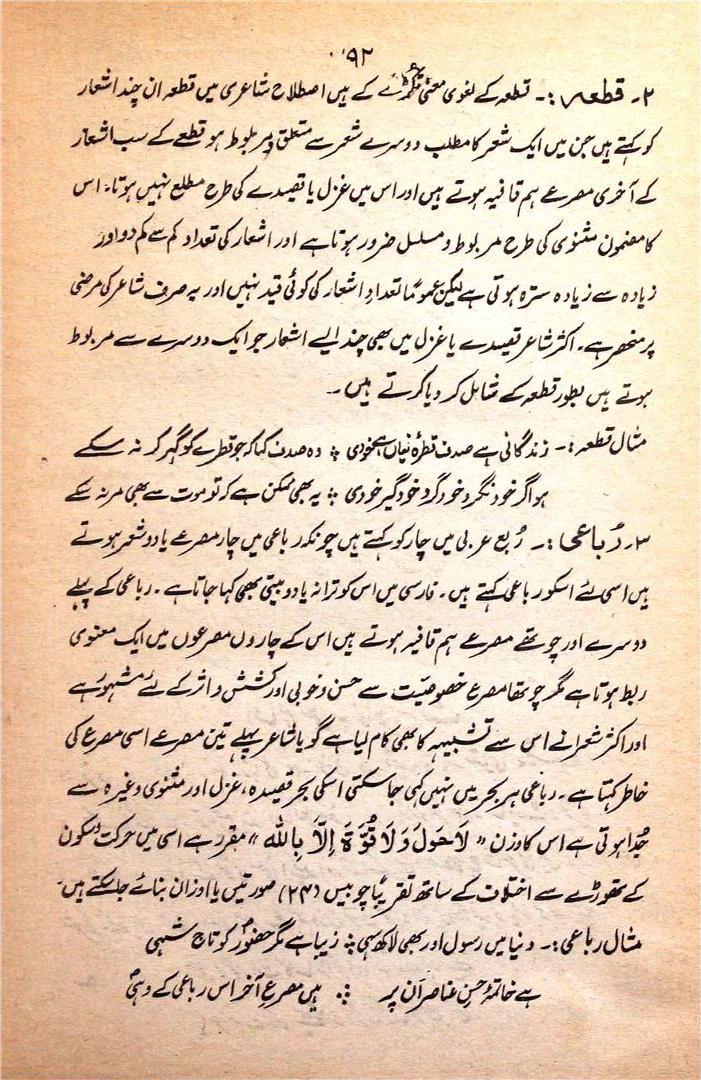 ۹۲
۲۔ قطعہ:۔ قطعہ کے لغوی معنی ٹکڑے کے ہیں اصطلاح شاعری میں قطعہ ان چند اشعار
کو کہتے ہیں جن میں ایک شعر کا مطلب دوسرے شعر سے متعلق و مربوط ہو قطعے کے سب اشعار
کے آخری مصرعے ہم قافیہ ہوتے ہیں اور اس میں غزل یا قصیدے کی طرح مطلع نہیں ہوتا۔ اس
کا مضمون مثنوی کی طرح مربوط و مسلسل ضرور ہوتا ہے اور اشعار کی تعداد کم سے کم دو اور
زیادہ سے زیادہ سترہ ہوتی ہے لیکن عموماً تعدادِ اشعار کی کوئی قید نہیں اور یہ صرف شاعر کی مرضی
پر منحصر ہے۔ اکثر شاعر قصیدے یا غزل میں بھی چند ایسے اشعار جو ایک دوسرے سے مربوط
ہوتے ہیں بطور قطعہ کے شامل کر دیا کرتے ہیں۔
مثال قطعہ:۔ زندگانی ہے صدف قطرۂ نیساں ہے خودی ؞ وہ صدف کیا کہ جو قطرے کو گہر کر نہ سکے
ہو اگر خود نگر و خود گر و خود گیر خودی ؞ یہ بھی ممکن ہے کہ تو موت سے بھی مر نہ سکے
۳۔ رُباعی:۔ رُبع عربی میں چار کو کہتے ہیں چونکہ رباعی میں چار مصرعے یا دو شعر ہوتے
ہیں اسی لئے اسکو رباعی کہتے ہیں۔ فارسی میں اس کو ترانہ یا دو بیتی بھی کہا جاتا ہے۔ رباعی کے پہلے
دوسرے اور چوتھے مصرعے ہم قافیہ ہوتے ہیں اس کے چاروں مصرعوں میں ایک معنوی
ربط ہوتا ہے مگر چوتھا مصرع خصوصیّت سے حسن و خوبی اور کشش و اثر کے لئے مشہور ہے
اور اکثر شعرا نے اس سے تشبیہہ کا بھی کام لیا ہے گویا شاعر پہلے تین مصرعے اسی مصرع کی
خاطر کہتا ہے۔ رباعی ہر بحر میں نہیں کہی جا سکتی اسکی بحر قصیدہ، غزل اور مثنوی وغیرہ سے
جُدا ہوتی ہے اس کا وزن "لَا حَولَ وَلَا قُوَّةَ اِلَّا بِاللّٰه" مقرر ہے اسی میں حرکت و سکون
کے تھوڑے سے اختلاف کے ساتھ تقریباً چوبیس (۲۴) صورتیں یا اوزان بنائے جا سکتے ہیں۔
مثال رباعی:۔ دنیا میں رسول اور بھی لاکھ سہی ؞ زیبا ہے مگر حضورؐ کو تاجِ شہی
ہے خاتمۂ حسنِ عناصر اُن پر ؞ ہیں مصرعِ آخر اس رباعی کے وہی